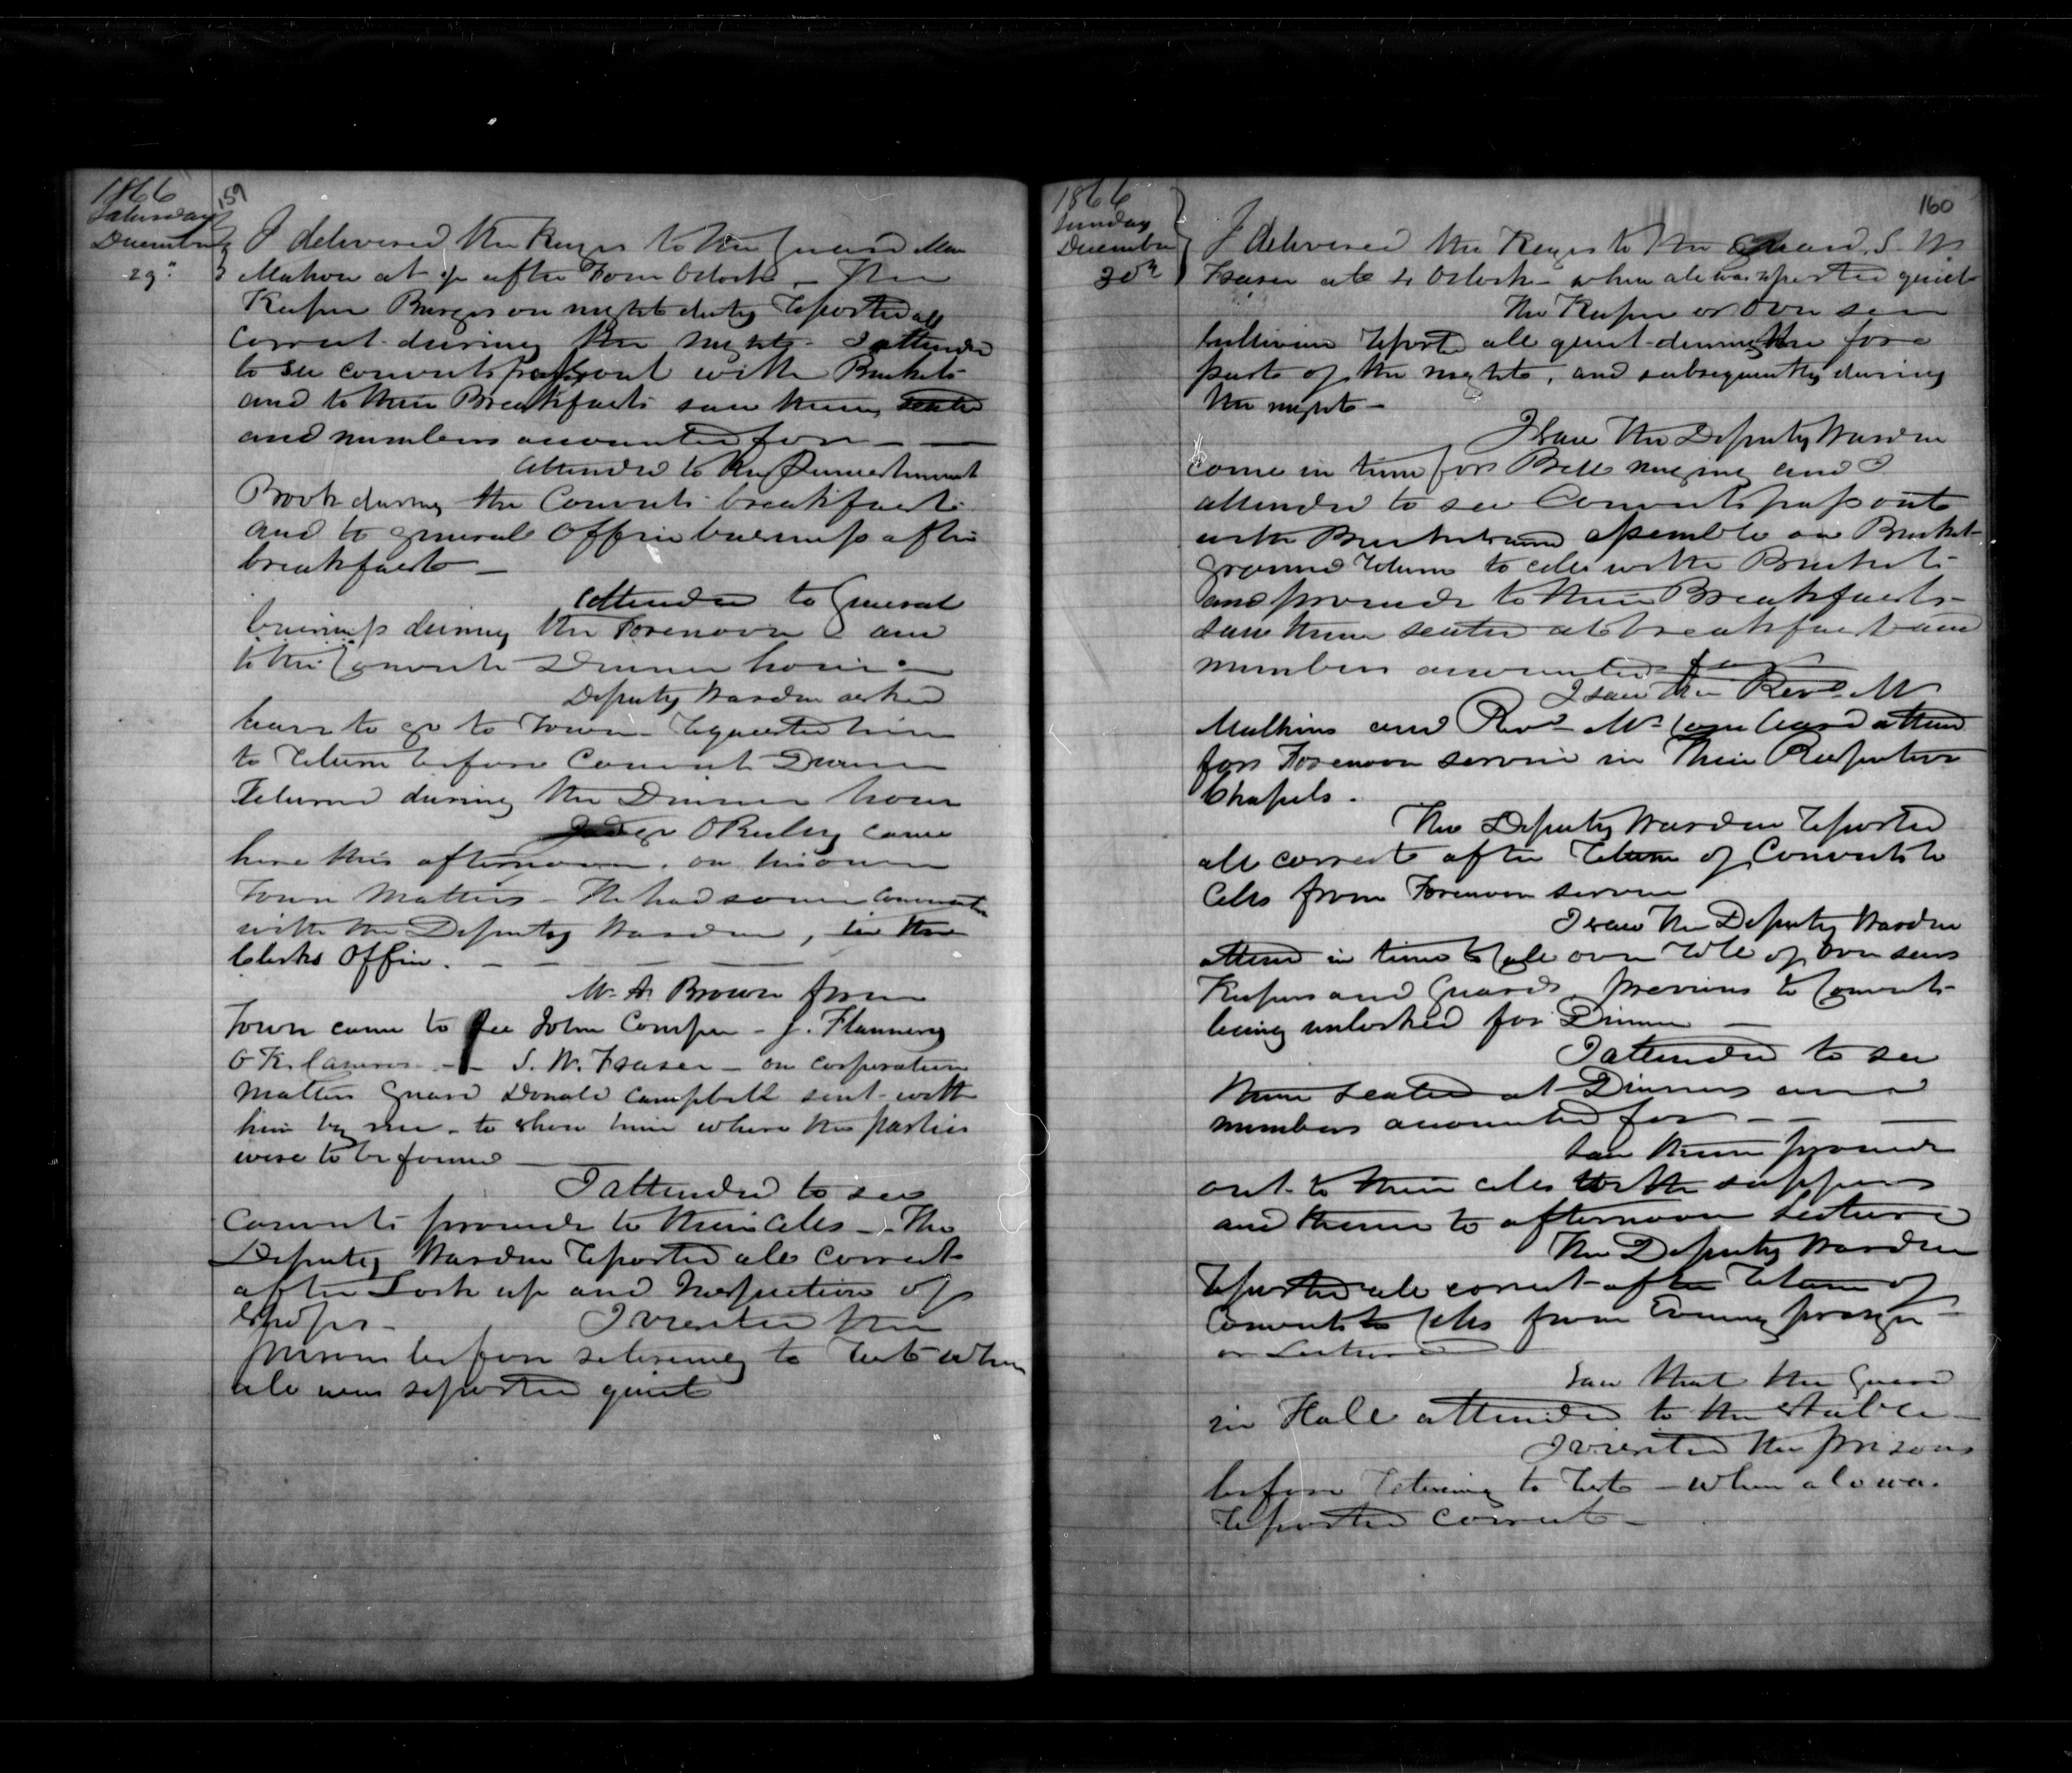 1866
159
Saturday
December
29"
I delivered the Keys to the Guard Mc
Mahon at ½ after Four Oclock - The
Keeper Burgess on night duty reported all
correct during the night - I attended
to see convicts pass out with Buckets
and to their Breakfasts saw them seated
and numbers accounted for -
Attended to the Punishment
Book during the Convicts breakfast
and to general Office business after
breakfast -
Attended to General
business during the Forenoon and
to the Convicts Dinner hour -
Deputy Warden asked
leave to go to Town - requested him
to return before Convict Dinner
returned during the Dinner hour
O Reiley came
here this afternoon, on his own
Town Matters - He had some
with the Deputy Warden, in the
Clerks Office. -
Mr. Brown from
Town came to see John Cooper - J. Flannery
S. W. Fraser - on corporation
matters Guard Donald Campbell sent with
him by me - to show him where the parties
were to be found -
I attended to see
Convicts proceed to their Cells - The
Deputy Warden reported all correct
after Lock up and Inspection of
Shops - I visited the
prison before retiring to rest when
all was reported quiet
1866
160
Sunday
December
30th
I delivered the Keys to the Guard S. W.
Fraser at 4 Oclock - when all was reported quiet
The Keeper or Overseer
Sullivan reported all quiet during the fore
part of the night, and subsequently during
the night -
I saw the Deputy Warden
come in time for Bell ringing and I
attended to see Convicts pass out
with Buckets and assemble on Bucket
ground return to cells with Buckets
and proceed to their Breakfasts -
saw them seated at breakfast and
numbers accounted for
I saw the Revd. Mr
Mulkins and Revd. Mr attend
for Forenoon service in Their Respective
Chapels.
The Deputy Warden reported
all correct after return of Convicts to
Cells from Forenoon service
I saw the Deputy Warden
attend in time to call over role of Overseers
Keepers and Guards previous to Convicts
being unlocked for Dinner -
I attended to see
them seated at Dinner and
numbers accounted for -
Saw them proceed
out to their cells with suppers
and them to afternoon Lecture
The Deputy Warden
reported all correct after return of
Convicts to Cells from Evening prayer
or Lecture
Saw that the Guard
in Hall attended to the Stable -
I visited the prison
before retiring to rest - when all was
reported correct -